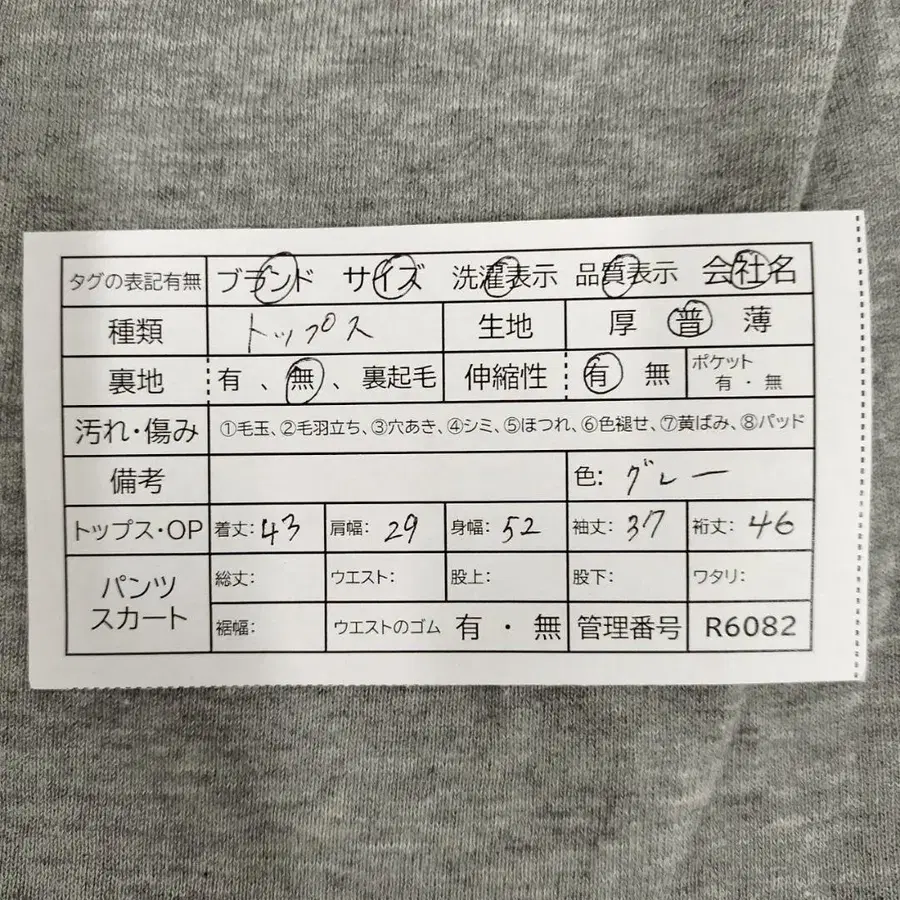 タグの表記有無 ブランド サイズ 洗濯表示 品質表示 会社名
種類 トップス 生地 厚 普 薄
裏地 有 、無、裏起毛 伸縮性 有 無 ポケット 有・無
汚れ・傷み ①毛玉、②毛羽立ち、③穴あき、④シミ、⑤ほつれ、⑥色褪せ、⑦黄ばみ、⑧パッド
備考 色: グレー
トップス・OP 着丈:43 肩幅:29 身幅:52 袖丈:37 裄丈:46
パンツ スカート 総丈: ウエスト: 股上: 股下: ワタリ:
裾幅: ウエストのゴム 有・無 管理番号 R6082